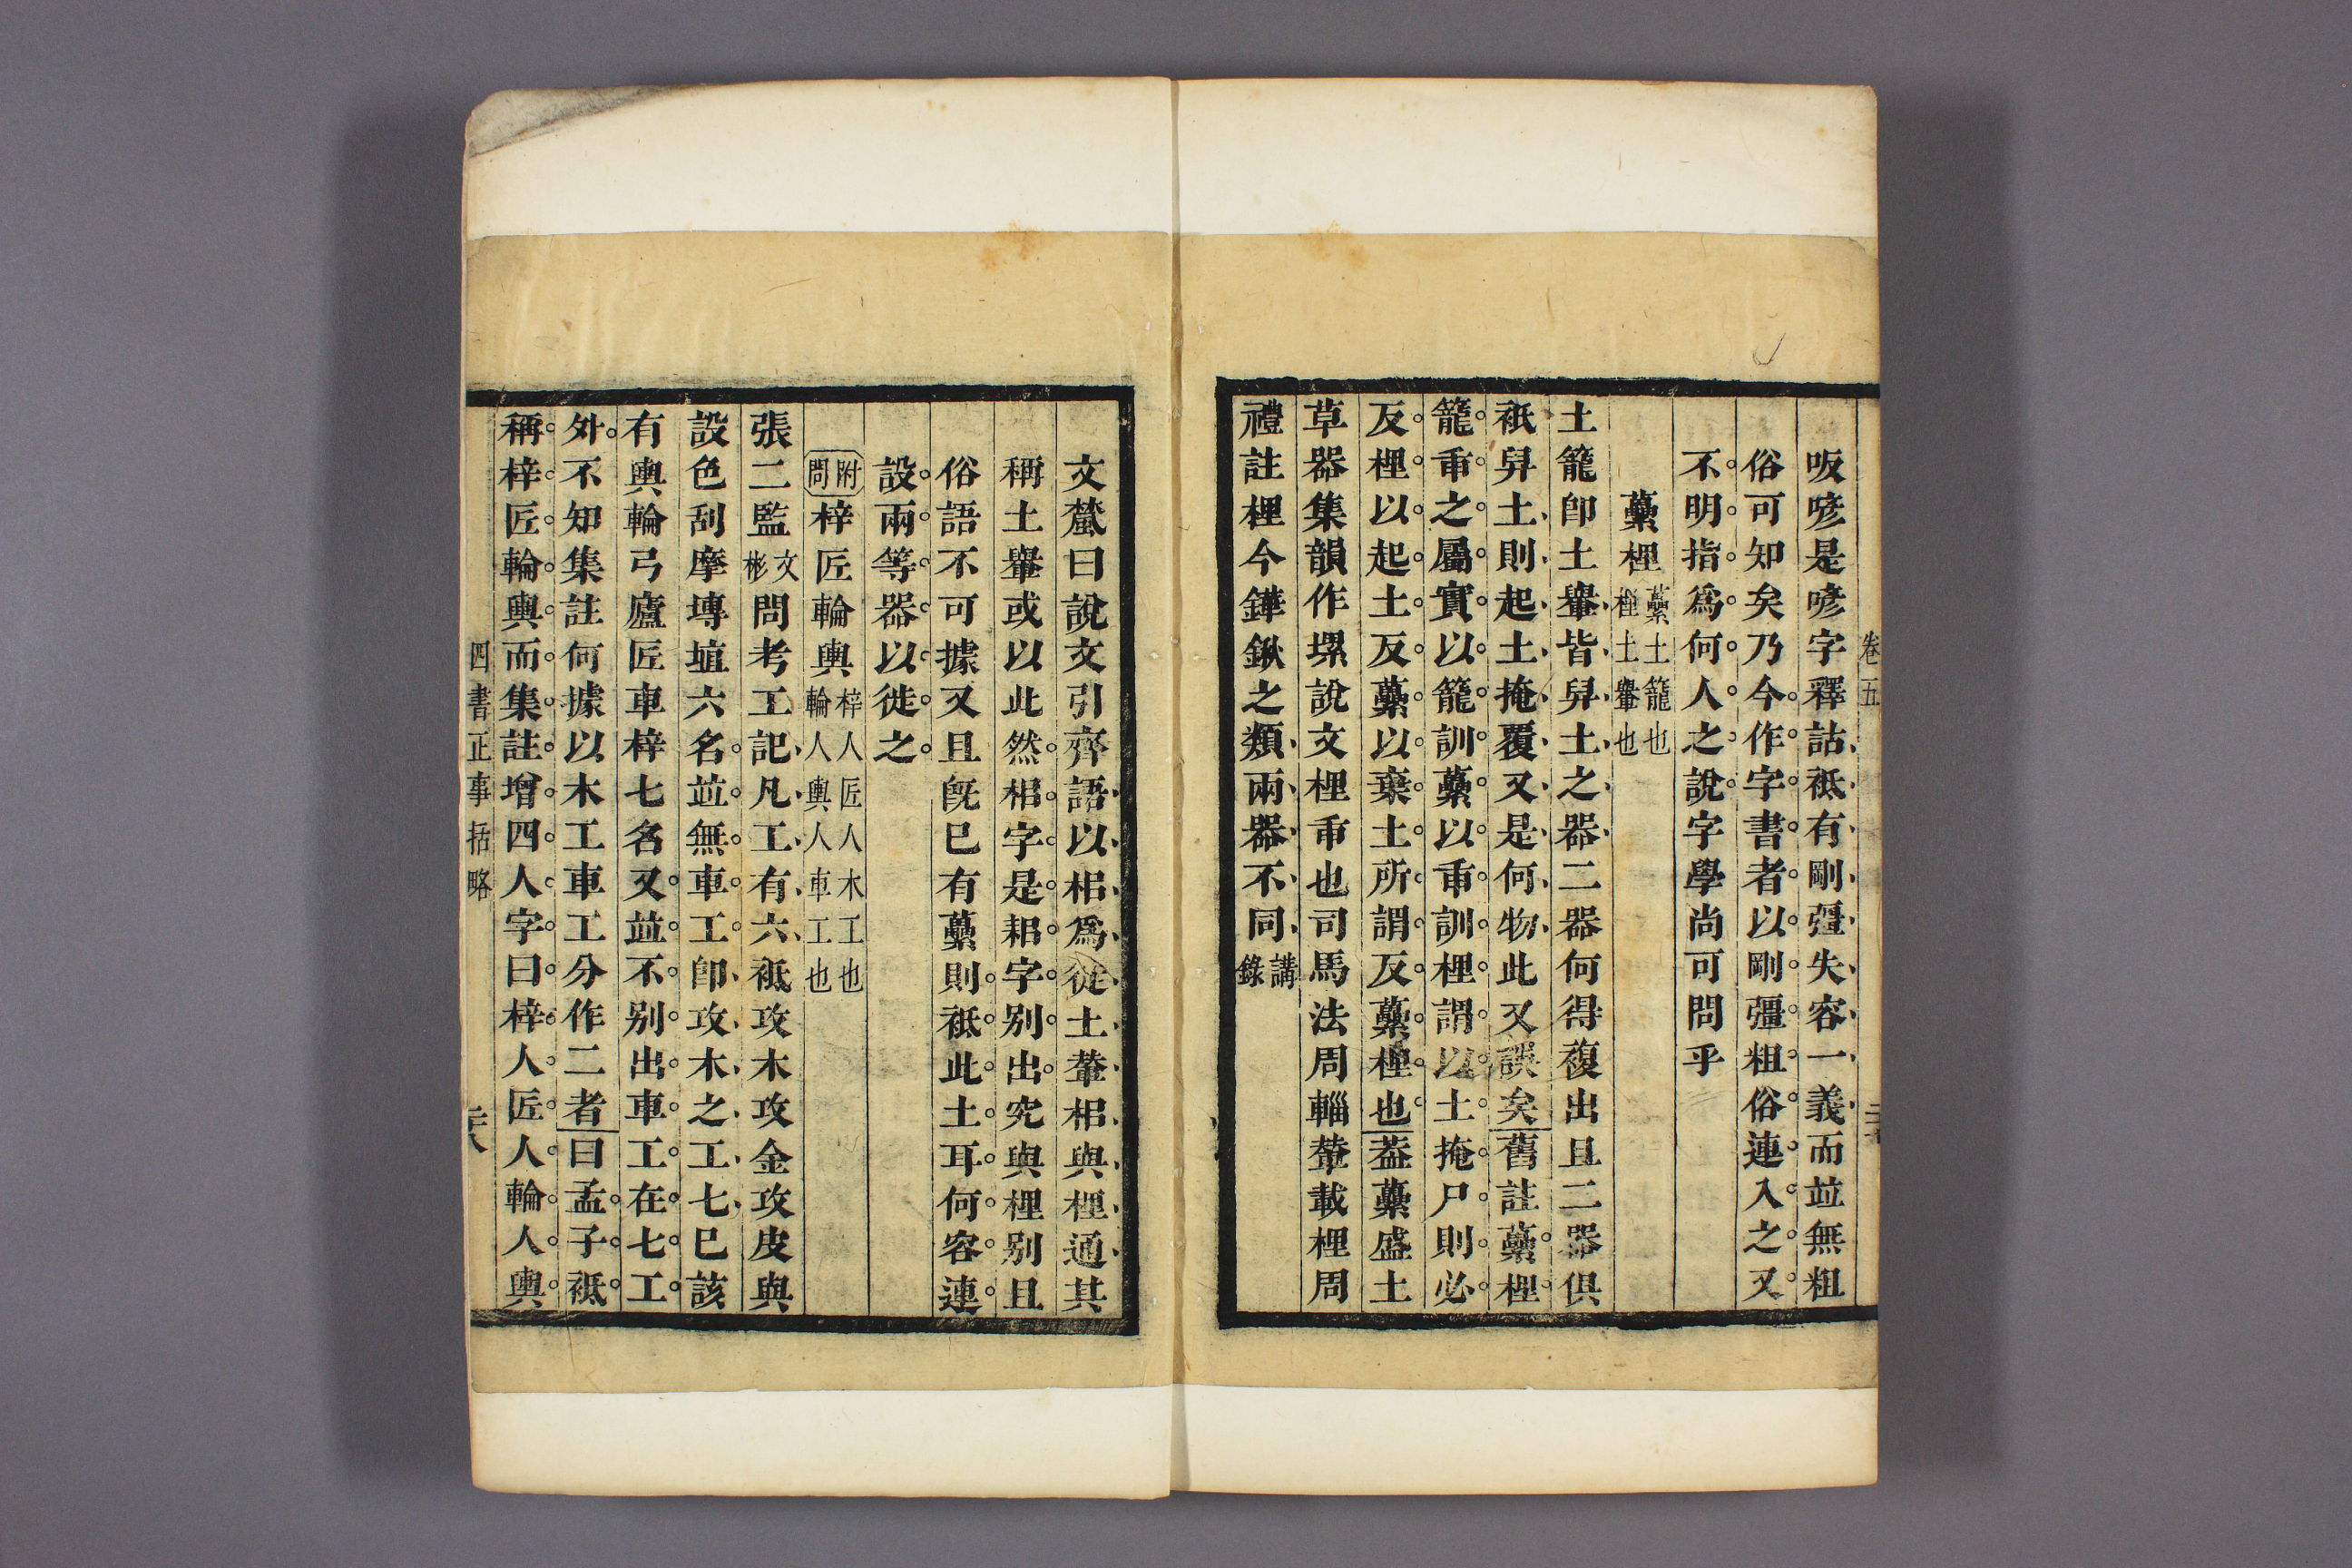 卷五
呄喭是喭字釋詁祗有剛彊失容一義而竝無粗
俗可知矣乃今作字書者以剛彊粗俗連入之又
不明指爲何人之說字學尚可問乎
虆梩虆土籠也梩土轝也
土籠卽土轝皆舁土之器二器何得複出且二器俱
祇舁土則起土掩覆又是何物此又誤矣舊註虆梩
籠臿之屬實以籠訓虆以臿訓梩謂以土掩尸則必
反梩以起土反虆以棄土所謂反虆梩也葢虆盛土
草器集韻作㙼說文梩臿也司馬法周輜輂載梩周
禮註梩今鏵鍬之類兩器不同講錄
文虆曰說文引齊語以梠爲徙土輂梠與梩通其
稱土轝或以此然梠字是耜字別出究與梩別且
俗語不可據又且旣已有虆則祗此土耳何容連
設兩等器以徙之
附問梓匠輪輿梓人匠人木工也輪人輿人車工也
張二監文彬問考工記凡工有六祗攻木攻金攻皮與
設色刮摩塼埴六名竝無車工卽攻木之工七已該
有輿輪弓廬匠車梓七名又竝不别出車工在七工
外不知集註何據以木工車工分作二者曰孟子祗
稱梓匠輪輿而集註增四人字曰梓人匠人輪人輿
四書正事括略